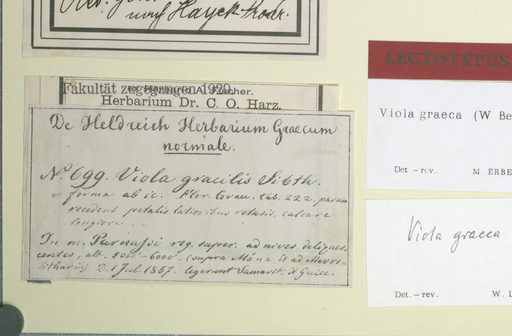 nach Hayek-Prodr.
Fakultät zugegangen 1929.
Herbarium Dr. C. O. Harz.
De Heldreich Herbarium Graecum
normale.
No. 699. Viola gracilis Sibth.
forma ab ic. Flor. Graec. tab. 222. parum
recedens petalis latioribus retusis, calcare
longiori.
In m. Parnassi reg. super. ad nives deliques-
centes, alt. 5000-6000'. (supra Mána et ad Mavro-
litharia) D. 1 Jul. 1857. legerunt Samarit. et Guicc.
LECTOTYPUS
Viola graeca (W Be
Det. - rev. M. ERBE
Viola graeca
Det. - rev. W.